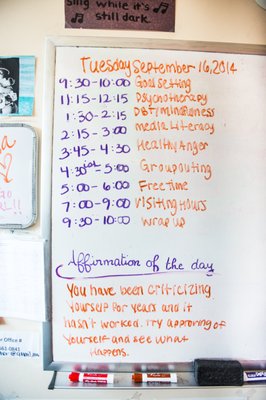 sing while it's
still dark.
Tuesday September 16, 2014
9:30-10:00 Goal setting
11:15-12:15 Psychotherapy
1:30-2:15 DBT/mindfulness
2:15-3:00 media Literacy
3:45-4:30 Healthy Anger
4:30 5:00 Group outing
5:00-6:00 Free time
7:00-9:00 Visiting Hours
9:30-10:00 Wrap up
Affirmation of the day
You have been criticizing
Yourself for years and it
hasn't worked. Try approving of
Yourself and see what
Happens.
Office #